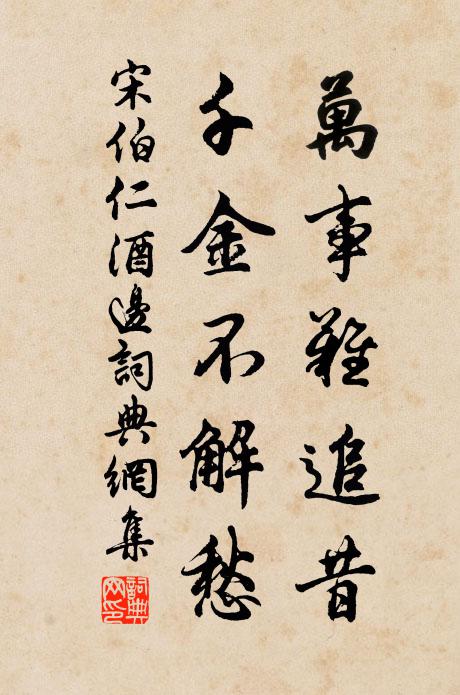 萬事難追昔
千金不解愁
宋伯仁酒邊詞典網集
詞典網印